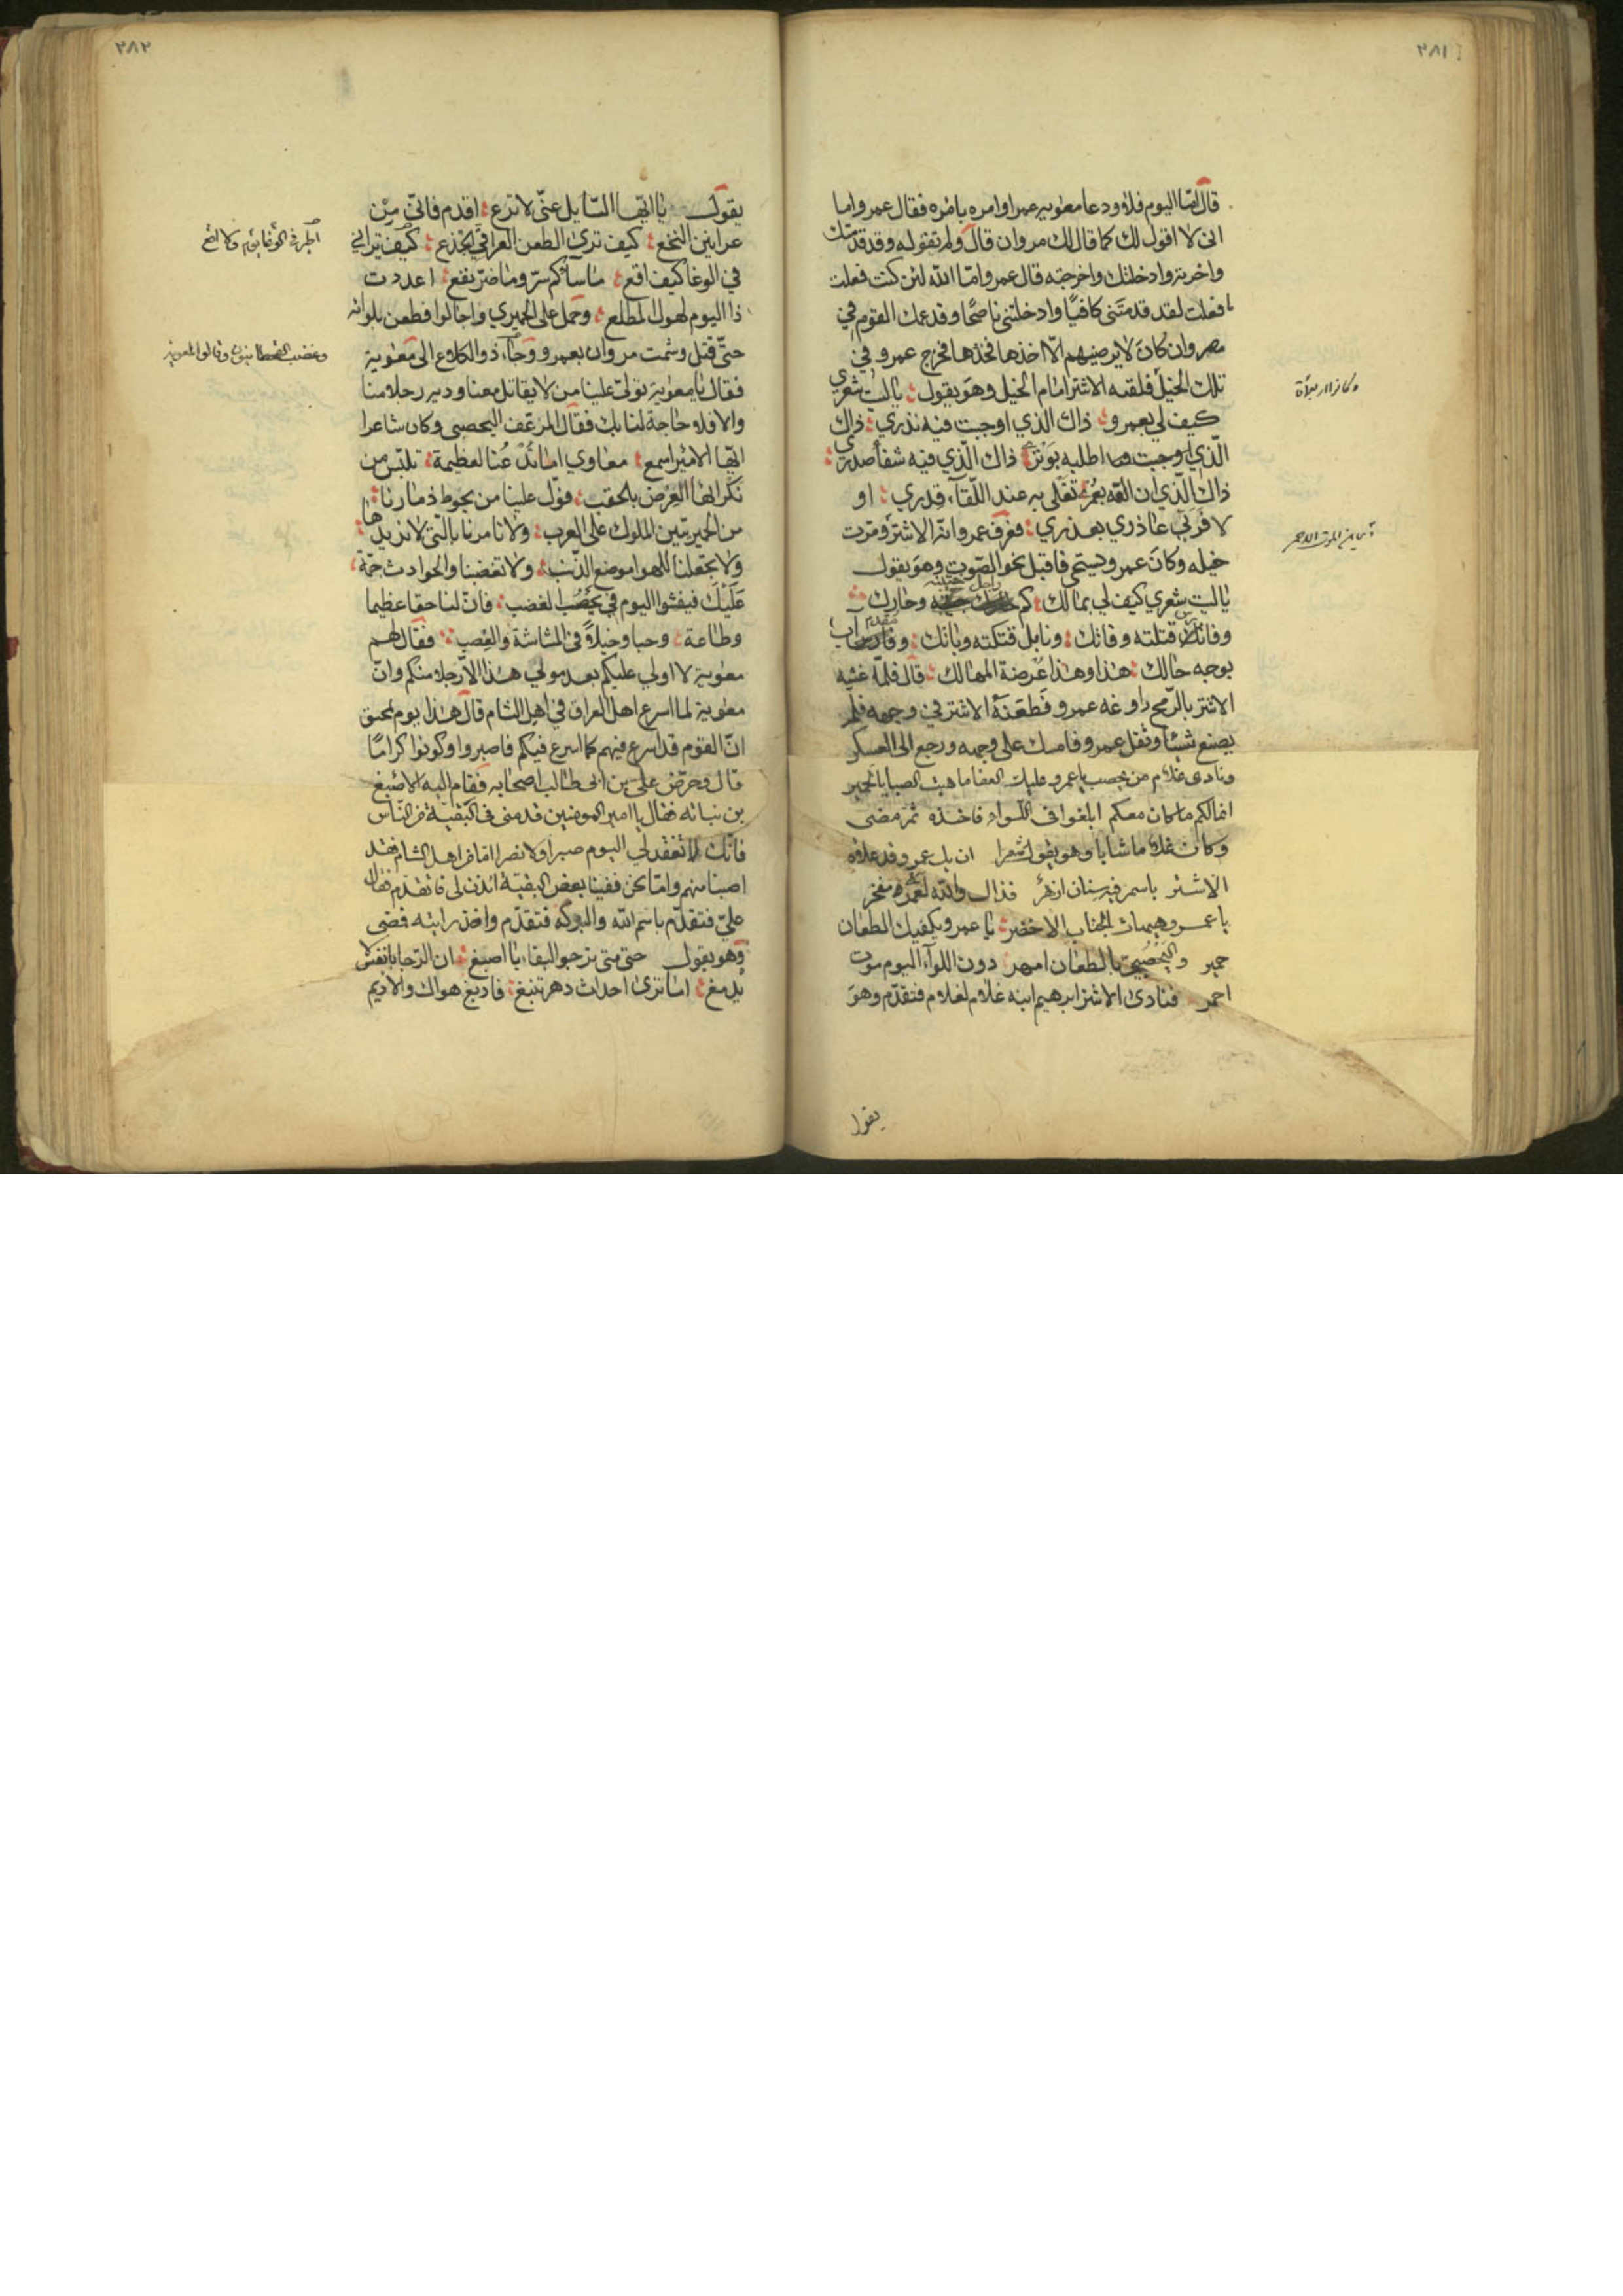 ٢٨١
قال اما اليوم فلا ودعا معوية عمرا وامره بامره فقال عمرو اما
انى لا اقول لك كما قال لك مروان قال ولم تقوله وقد قدمتك
واخرته وادخلتك واخرجته قال عمرو اما الله لئن كنت فعلت
ما فعلت لقد قدمتنى كافيا وادخلتنى ناصحا وقد عمك القوم في
مصر وان كان لا يرضيهم الا اخذها فخذها فخرج عمرو في
تلك الخيل فلقيه الاشتر امام الخيل وهو يقول ياليت شعري
كيف لي بعمرو ذاك الذي اوجبت فيه نذري ذاك
الذي اطلبه بوتري ذاك الذي فيه شفا صدري
ذاك الذي ان القه بعمري تغلى به عند اللقاء قدري او
لا فربي عاذري بعذري فعرف عمرو انه الاشتر ومرت
خيله وكان عمرو يستحى فاقبل نحو الصوت وهو يقول
ياليت شعري كيف لي بمالك كم جاهل خيبته وحارك
وفارس قتلته وفاتك ونابل فتكته وباتك ومقدم آب
بوجه حالك هذا وهذا عرضة المهالك قال فلما غشيه
الاشتر بالرمح راوغه عمرو فطعنه الاشتر في وجهه فلم
يصنع شيئا وثقل عمرو فامسك على وجهه ورجع الى العسكر
ونادى غلام من يحصب يا عمرو عليك العفا ما هبت الصبا يا لحمير
انما لكم ما كان معكم ابلغوا في اللواء فاخذه ثم مضى
وكان غلاما شابا وهو يقول شعرا ان يك عمرو قد علاه
الاشتر باسمر فيه سنان ازهر فذاك والله لعمرى مفخر
يا عمرو هيهات الجناب الاخضر يا عمرو يكفيك الطعان
حمير واليحصبي بالطعان امهر دون اللواء اليوم موت
احمر فنادى الاشتر ابرهيم ابنه غلام لغلام فتقدم وهو
يقول
٢٨٢
يقول يا ايها السايل عنى لا ترع اقدم فانى من
عرانين النخع كيف ترى الطعن العراقي الجذع كيف تراني
في الوغا كيف اقع ما ساكم سر وما ضر نفع اعددت
ذا اليوم لهول المطلع وحمل على الحميري واجالوا فطعن بلوائه
حتى قتل وشمت مروان بعمرو وجاء ذو الكلاع الى معوية
وغضب القحطانيون وقالوا لمعوية
فقال يا معوية تولى علينا من لا يقاتل معنا ودبر رجلا منا
والا فلا حاجة لنا بك فقال المرعف اليحصبى وكان شاعرا
ايها الامير اسمع معاوي اما تدعنا لعظيمة تلبس من
نكرائها العرض بالحقب فول علينا من يحوط ذمارنا
من الحميريين الملوك على العرب ولا تامرنا بالتى لا نريدها
ولا تجعلنا للهوا موضع الذنب ولا تغضبنا والحوادث جمة
عليك فيفشوا اليوم في يحصب الغضب فان لنا حقا عظيما
وطاعة وحبا دخيلا في المشاشة والعصب فقال لهم
معوية لا اولي عليكم بعد مولي هذا الا رجلا منكم وان
معوية لما اسرع اهل العراق في اهل الشام قال هذا يوم تمحيق
ان القوم قد اسرع فيهم كما اسرع فيكم فاصبروا وكونوا كراما
قال وحرض علي بن ابى طالب اصحابه فقام اليه الاصبغ
بن نباته فقال يا امير المومنين قدمنى في البقية من الناس
فانك لا تفقد لي اليوم صبرا ولا نصرا اما اهل الشام فقد
اصبنا منهم واما نحن ففينا بعض البقية ائذن لى فاتقدم فقال
علي فتقدم باسم الله والبركة فتقدم واخذ رايته فمضى
وهو يقول حتى متى ترجو البقاء يا اصبغ ان الرجا بالقنوط
يدمغ اما ترى احداث دهر تنبغ فادبغ هواك والاديم